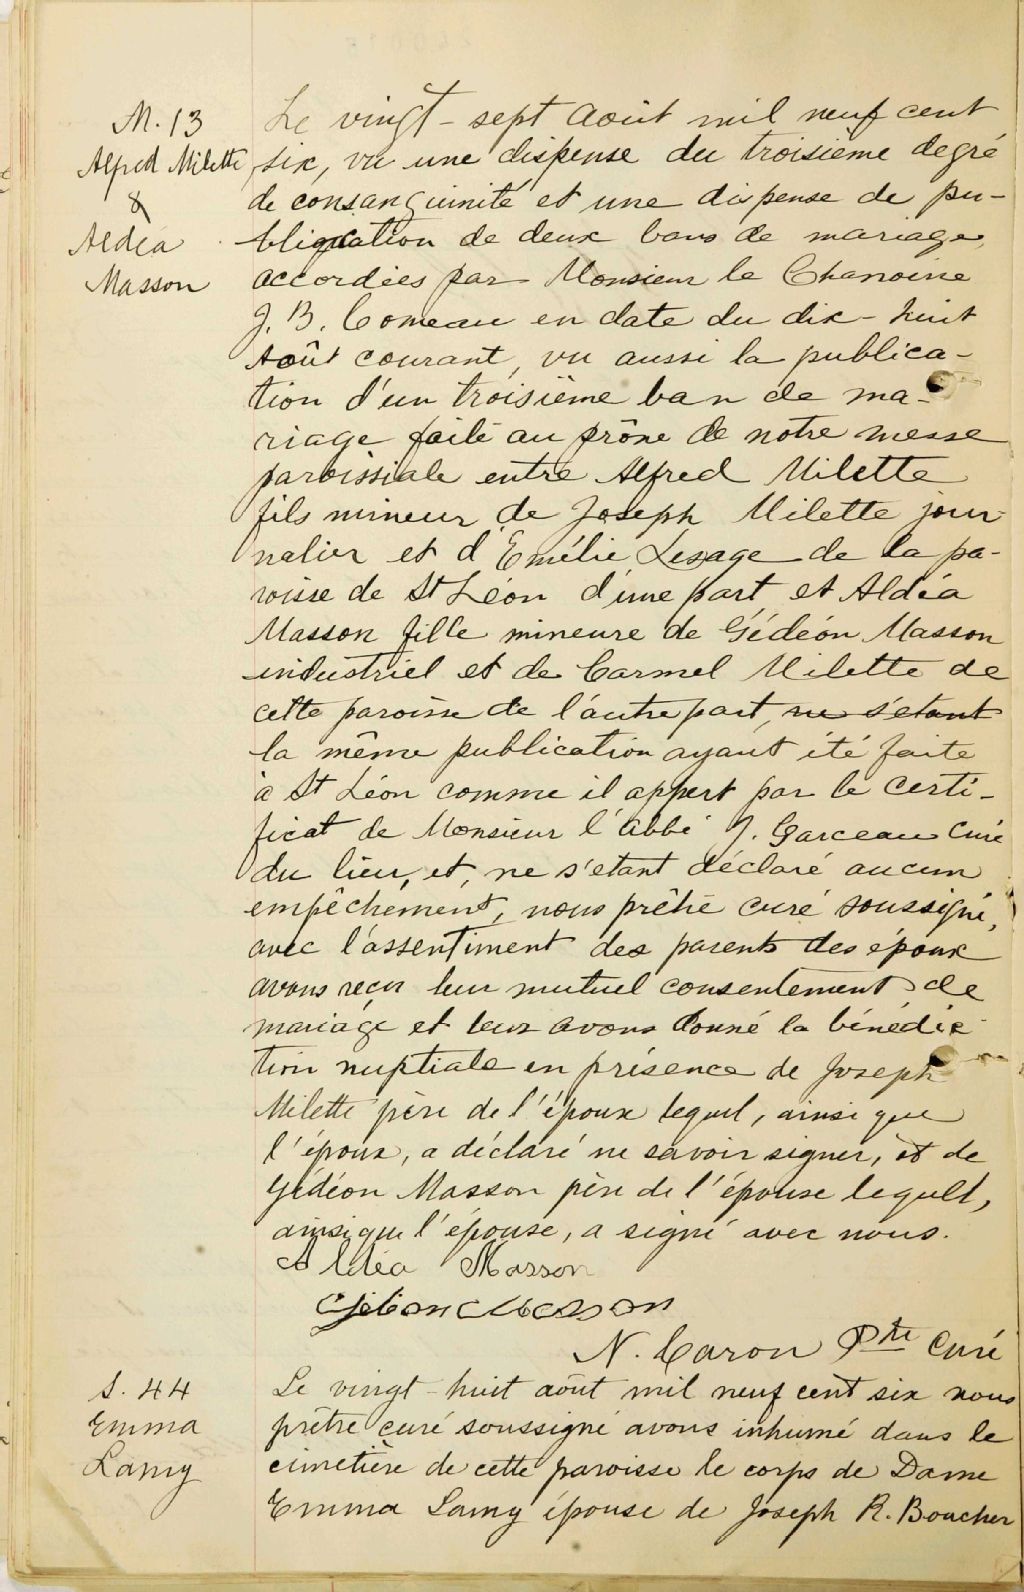 M. 13
Alfred Milette
&
Aldéa
Masson
Le vingt-sept août mil neuf cent
six, vu une dispense du troisième degré
de consanguinité et une dispense de pu-
blication de deux bans de mariage,
accordées par Monsieur le Chanoine
J. B. Comeau en date du dix-huit
août courant, vu aussi la publica-
tion d'un troisième ban de ma-
riage faite au prône de notre messe
paroissiale entre Alfred Milette
fils mineur de Joseph Milette jour-
nalier et d'Emélie Lesage de la pa-
roisse de St Léon d'une part, et Aldéa
Masson fille mineure de Gédéon Masson
industriel et de Carmel Milette de
cette paroisse de l'autre part, ne s'étant
la même publication ayant été faite
à St Léon comme il appert par le certi-
ficat de Monsieur l'abbé J. Garceau curé
du lieu, et, ne s'etant déclaré aucun
empêchement, nous prêtre curé soussigné,
avec l'assentiment des parents des époux
avons reçu leur mutuel consentement de
mariage et leur avons donné la bénédic-
tion nuptiale en présence de Joseph
Milette père de l'époux lequel, ainsi que
l'époux, a déclaré ne savoir signer, et de
Gédéon Masson père de l'épouse lequel,
ainsi que l'épouse, a signé avec nous.
Aldéa Masson
Gédéon Masson
N. Caron Ptre Curé
S. 44
Emma
Lamy
Le vingt-huit août mil neuf cent six nous
prêtre curé soussigné avons inhumé dans le
cimetière de cette paroisse le corps de Dame
Emma Lamy épouse de Joseph R. Boucher